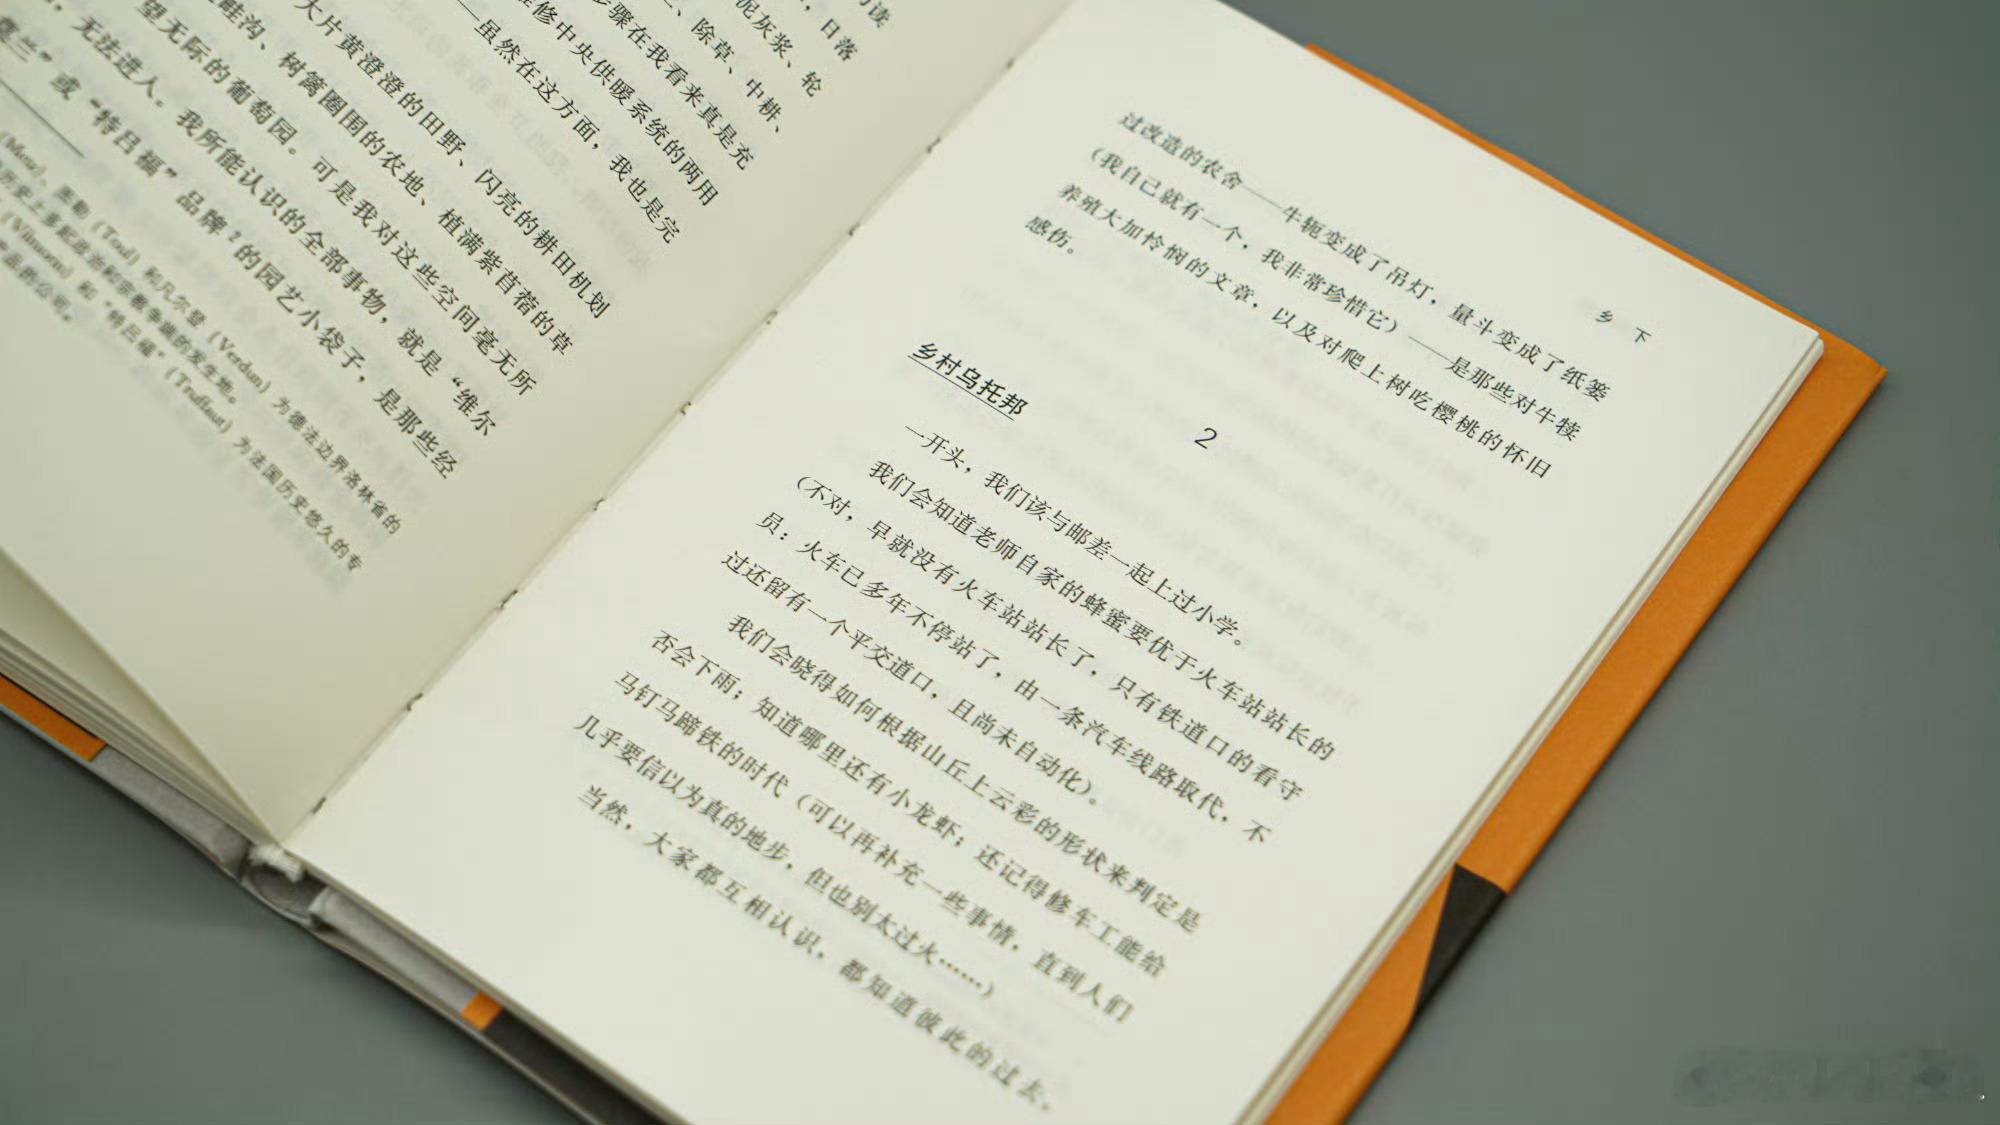 阅读
，日落
泥灰浆、轮
、除草、中耕、
步骤在我看来真是充
维修中央供暖系统的两用
——虽然在这方面，我也是完
大片黄澄澄的田野、闪亮的耕田机划
畦沟、树篱圈围的农地、植满紫苜蓿的草
望无际的葡萄园。可是我对这些空间毫无所
，无法进入。我所能认识的全部事物，就是“维尔
莫兰”或“特吕福”品牌²的园艺小袋子，是那些经
（Metz）、图勒（Toul）和凡尔登（Verdun）为德法边界洛林省的
历史上多起政治和宗教争端的发生地。
（Vilmorin）和“特吕福”（Truffaut）为法国历史悠久的专
产品的公司。
乡 下
过改造的农舍——牛轭变成了吊灯，量斗变成了纸篓
（我自己就有一个，我非常珍惜它）——是那些对牛犊
养殖大加怜悯的文章，以及对爬上树吃樱桃的怀旧
感伤。
2
乡村乌托邦
一开头，我们该与邮差一起上过小学。
我们会知道老师自家的蜂蜜要优于火车站站长的
（不对，早就没有火车站站长了，只有铁道口的看守
员：火车已多年不停站了，由一条汽车线路取代，不
过还留有一个平交道口，且尚未自动化）。
我们会晓得如何根据山丘上云彩的形状来判定是
否会下雨；知道哪里还有小龙虾；还记得修车工能给
马钉马蹄铁的时代（可以再补充一些事情，直到人们
几乎要信以为真的地步，但也别太过火……）
当然，大家都互相认识，都知道彼此的过去。